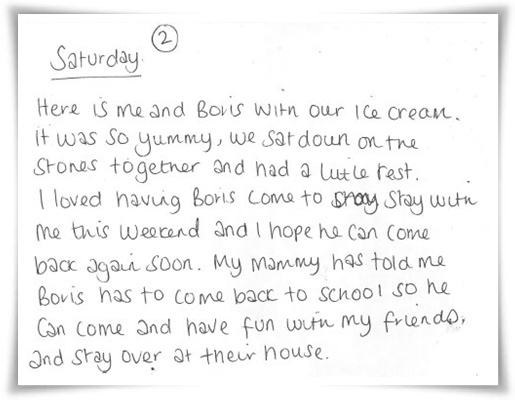 ②
Saturday.
Here is me and Boris with our Ice cream.
it was so yummy, we sat down on the
stones together and had a little rest.
I loved having Boris come to stay with
me this weekend and I hope he can come
back again soon. My mammy has told me
Boris has to come back to school so he
can come and have fun with my friends,
and stay over at their house.